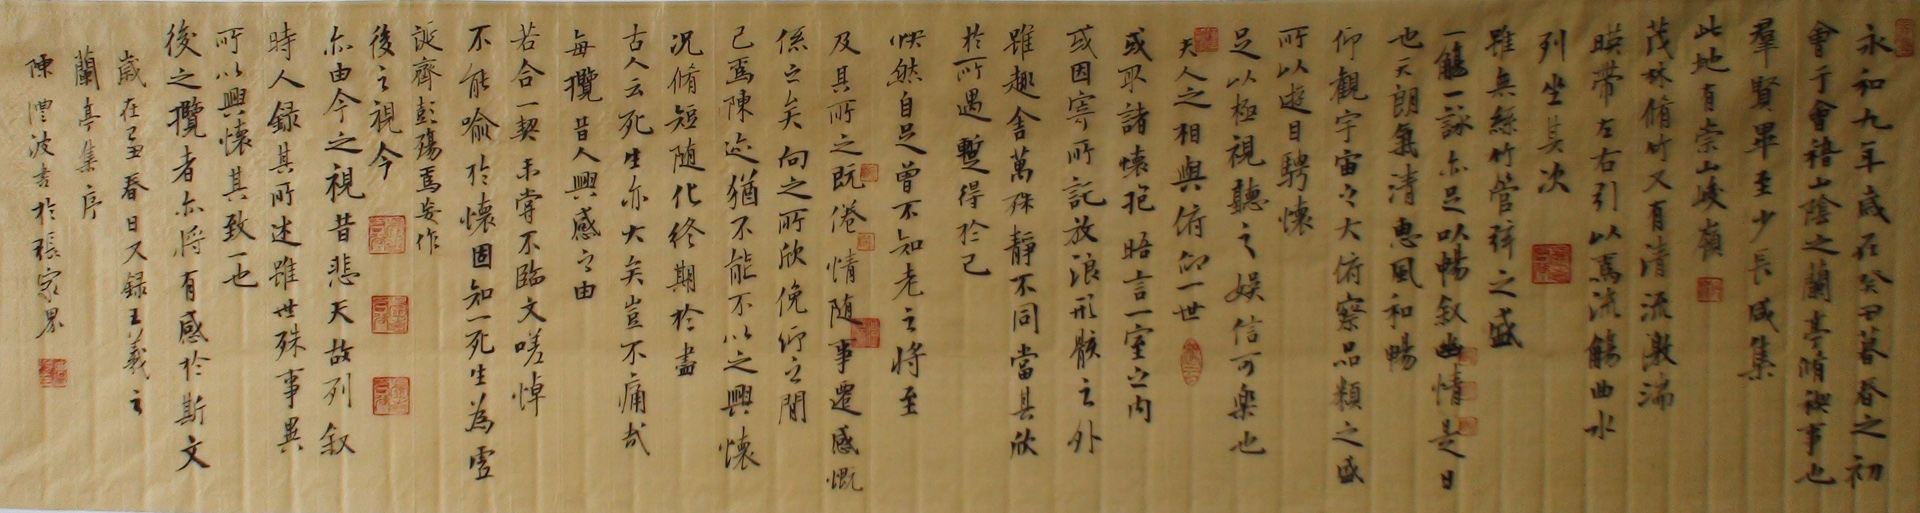 永和九年歲在癸丑暮春之初
會于會稽山陰之蘭亭脩禊事也
羣賢畢至少長咸集
此地有崇山峻嶺
茂林脩竹又有清流激湍
暎帶左右引以為流觴曲水
列坐其次
雖無絲竹管弦之盛
一觴一詠亦足以暢敘幽情是日
也天朗氣清惠風和暢
仰觀宇宙之大俯察品類之盛
所以遊目騁懷
足以極視聽之娛信可樂也
夫人之相與俯仰一世
或取諸懷抱晤言一室之內
或因寄所託放浪形骸之外
雖趣舍萬殊靜不同當其欣
於所遇暫得於己
怏然自足曾不知老之將至
及其所之既倦情隨事遷感慨
係之矣向之所欣俛仰之閒
已為陳迹猶不能不以之興懷
況脩短隨化終期於盡
古人云死生亦大矣豈不痛哉
每攬昔人興感之由
若合一契未嘗不臨文嗟悼
不能喻於懷固知一死生為虛
誕齊彭殤為妄作
後之視今
亦由今之視昔悲夫故列敘
時人錄其所述雖世殊事異
所以興懷其致一也
後之攬者亦將有感於斯文
歲在己丑春日又錄王羲之
蘭亭集序
陳澧波書於張家界